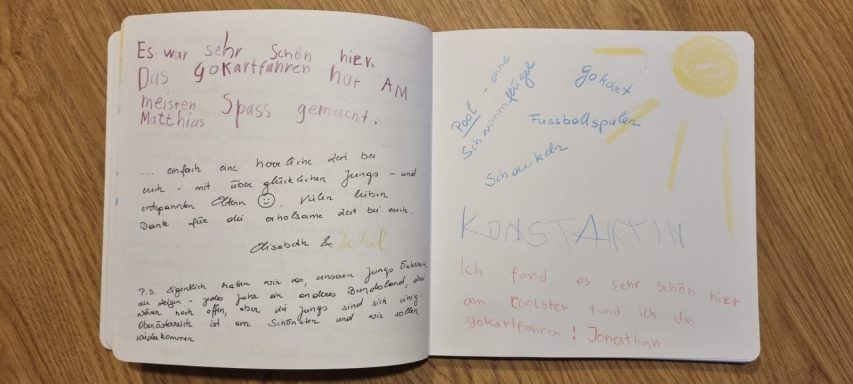 Es war sehr schön hier.
Das gokartfahren hat AM
meisten Spass gemacht.
Matthias
... einfach eine herrliche Zeit bei
euch - mit überglücklichen Jungs - und
entspannten Eltern ☺. Vielen lieben
Danke für die erholsame Zeit bei euch.
Elisabeth &
P.S. Eigentlich hatten wir vor, unseren Jungs Österreich
zu zeigen - jedes Jahr ein anderes Bundesland, drei
wären noch offen, aber die Jungs sind sich einig
Oberösterreich ist am Schönsten und wir wollen
wiederkommen
Pool - ohne
Schwimmflügel
gokart
Fussballspielen
Schaukeln
KONSTANTIN
Ich fand es sehr schön hier
am coolsten fand ich das
gokartfahren! Jonathan